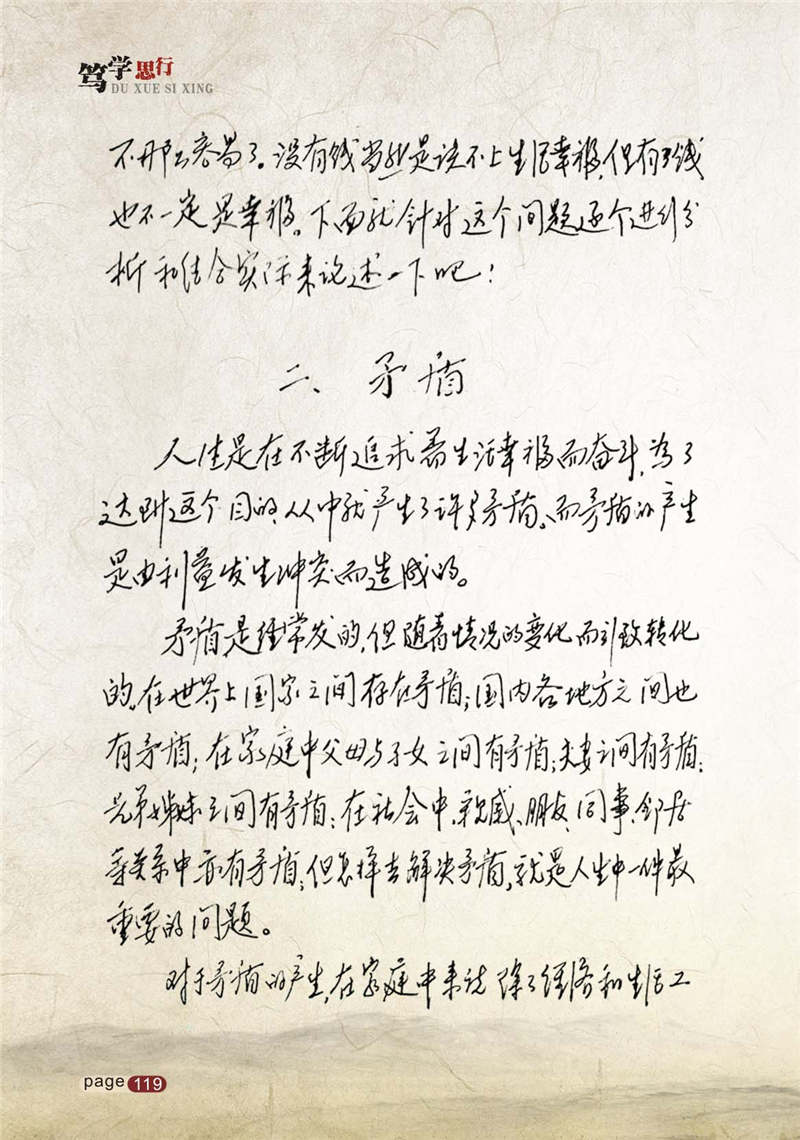 笃学思行
DU XUE SI XING
不那么容易了。没有钱当然是谈不上生活幸福，但有了钱
也不一定是幸福。下面就针对这个问题逐个进行分
析和结合实际来论述一下吧！
二、矛盾
人生是在不断追求着生活幸福而奋斗，为了
达到这个目的，从中就产生了许多矛盾。而矛盾的产生
是由利益发生冲突而造成的。
矛盾是经常发的，但随着情况的变化而引致转化
的。在世界上国家之间存在矛盾；国内各地方之间也
有矛盾；在家庭中父母与子女之间有矛盾；夫妻之间有矛盾；
兄弟姊妹之间有矛盾；在社会中，亲戚、朋友、同事、邻居
等关系中亦有矛盾；但怎样去解决矛盾，就是人生中一件最
重要的问题。
对于矛盾的产生，在家庭中来说除了经济和生活工
page 119